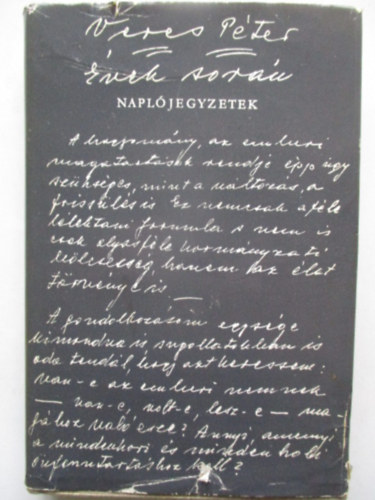 Veres Péter
Évek során
NAPLÓJEGYZETEK
A hagyomány, az emberi
magatartások rendje épp úgy
szükséges, mint a változás, a
frissülés is Ez nemcsak aféle
lélektani formula s nem is
csak olyasféle kormányzati
bölcsesség, hanem az élet
törvénye is —
A gondolkozásom egysége
kimondva is sugallatokban is
oda tendál, hogy azt keressem:
van-e az emberi nemnek
— van-e, volt-e, lesz-e — ma-
gához való esze? Annyi, amennyi
a mindenkori és minden holi
önfenntartáshoz kell?